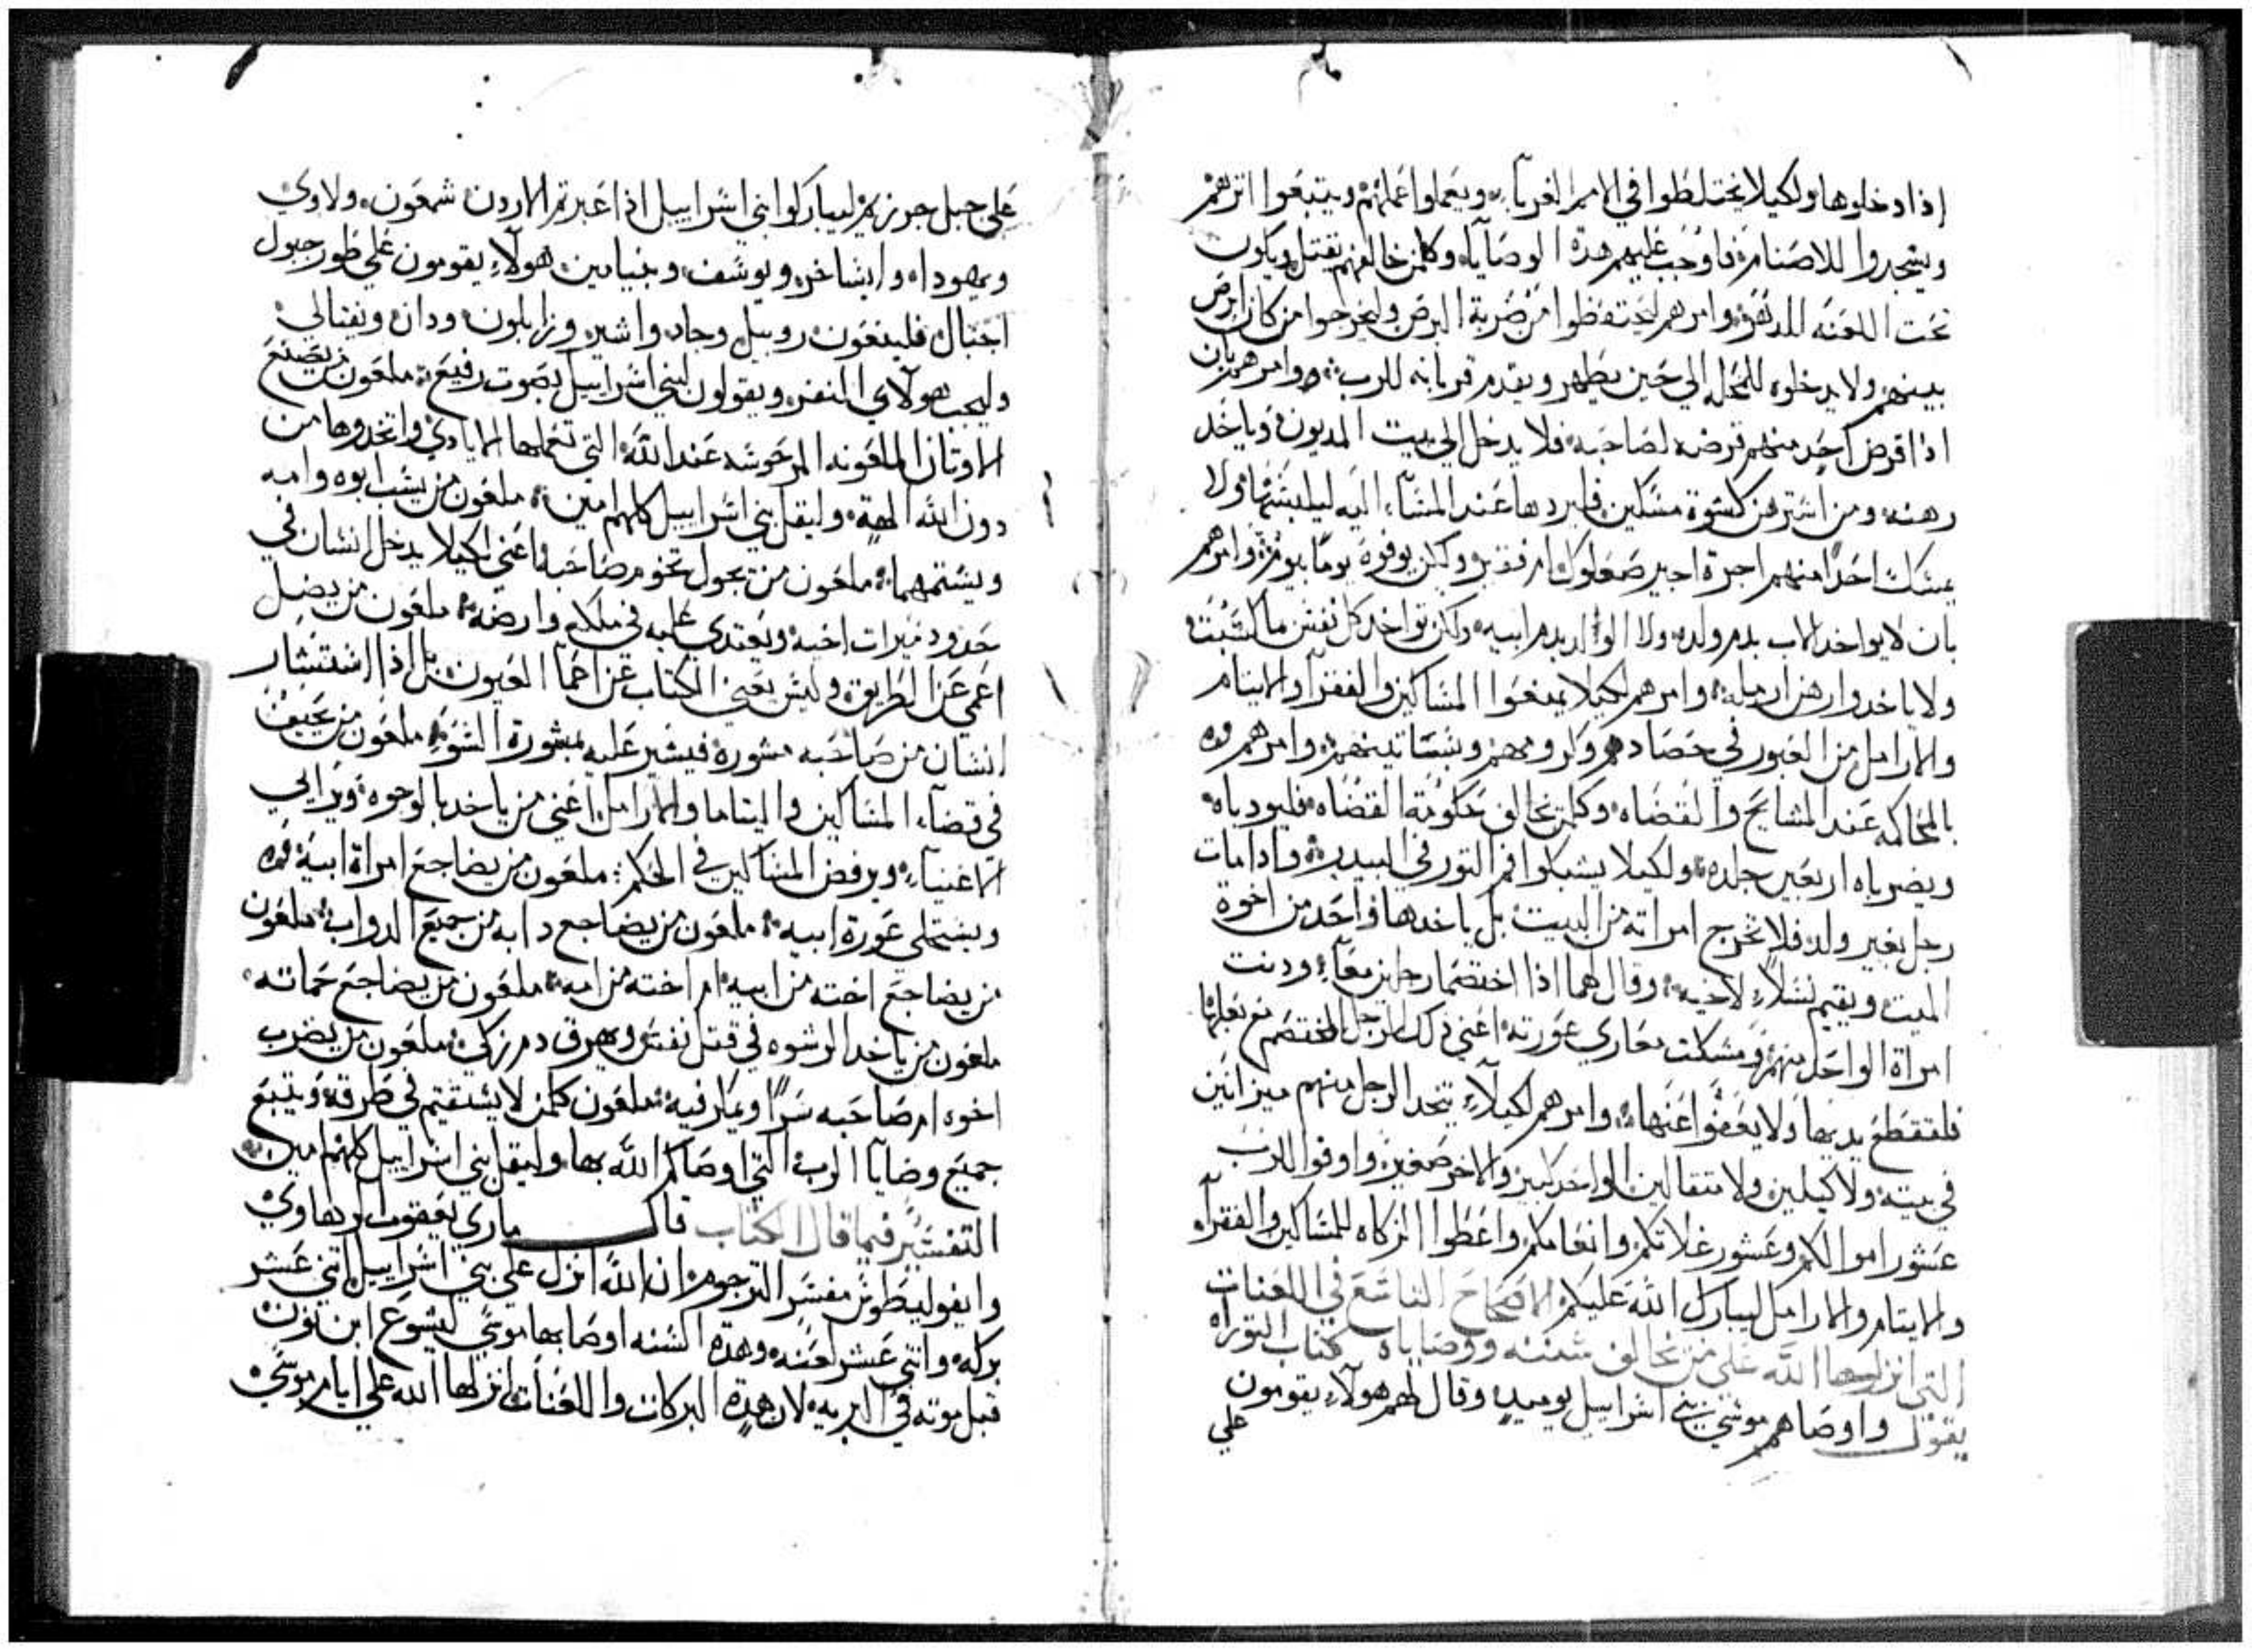 اذا دخلوها ولكيلا يختلطوا في الامم الغربآء ويعملوا اعمالهم ويتبعوا اثرهم
ويسجدوا للاصنام فاوجب عليهم هدة الوصايا وكلمن خالفهم يقتل ويكون
تحت اللعنه للدفقه وامرهم ليحتفظوا من ضربة البرص وليخرجوا من كان ابرص
بينهم ولا يدخلوه للمحله الي حين يطهر ويقدم قربانه للرب وامرهم بان
اذا اقرض احد منهم قرضه لصاحبه فلا يدخل الي بيت المديون وياخد
رهنه ومن استرهن كسوة مسكين فليردها عند المسآء اليه ليلبسها ولا
يمسك احدًا منهم اجرة اجير صعلوك ام فقير ولكن يوفوه يومًا بيوم وامرهم
بان لا يواخد الاب بدم ولده ولا الولد بدم ابيه ولكن تواخد كل نفس ما اكتسبت
ولا ياخدوا رهن ارمله وامرهم لكيلا يمنعوا المساكين والفقرآ والايتام
والارامل من العبور في حصادهم وكرومهم وبساتينهم وامرهم
بالمحاكمه عند المشايخ والقضاه وكلمن يخالف حكومة القضاه فليودباه
ويضرباه اربعين جلده ولكيلا يشبكوا فم التور في البيدر وادا مات
رجل بغير ولد فلا تخرج امراته من البيت بل ياخدها واحد من اخوة
الميت ويقيم نسلاً لاخيه وقال لهما اذا اختصما رجلين معًا ودنت
امراة الواحد منهم ومسكت معاري عورته اعني ذلك الرجل المختصم مع بعلها
فلتقطع يديها ولا يعفوا عنها وامرهم لكيلآء يتخد الرجل منهم ميزانين
في بيته ولا كيلين ولا متقالين الواحد كبير والاخر صغير واوفوا للرب
عشور اموالكم وعشور غلاتكم وانعامكم واعطوا الزكاه للمساكين والفقرآء
والايتام والارامل ليبارك الله عليكم الاصحاح التاسع في اللعنات
التي انزلها الله علي من يخالف سننه ووصاياه كتاب التوراه
يقول واوصاهم موسي بني اسراييل يوميدٍ وقال لهم هولآء يقومون
علي
علي جبل جرزيم ليباركوا بني اسراييل اذا عبرتم الاردن شمعون ولاوي
ويهودا وايساخر ويوسف وبنيامين هولآء يقومون علي طور جبول
اجبال فليلعنون روبيل وجاد واشير وزابلون ودان ونفتالي
وليجب هولاي النفر ويقولون لبني اسراييل بصوت رفيع ملعون من يصنع
الاوتان الملعونه المرجوسه عند الله التي تعملها الايادي واتخدوها من
دون الله الهة وليقل بني اسراييل كلهم امين ملعون من يسب ابوه وامه
ويشتمهما ملعون من يحول تخوم صاحبه اعني لكيلا يدخل انسان في
حدود ميرات اخيه ويعتدي عليه في ملكه وارضه ملعون من يضل
اعمي عن الطريق وليس يعني الكتاب عن اعمآ العيون بل اذا استشار
انسان من صاحبه مشوره فيشير عليه بمشورة السوء ملعون من يحيف
في قضآء المساكين واليتاما والارامل اعني من ياخد بالوجوه ويرايي
الاغنيآء ويرفض المساكين في الحكم ملعون من يضاجع امراة ابيه
ويستحلي عورة ابيه ملعون من يضاجع دابه من جميع الدواب ملعون
من يضاجع اخته من ابيه ام اخته من امه ملعون من يضاجع حماته
ملعون من ياخد الرشوه في قتل نفس ويهرق دم زكي ملعون من يضرب
اخوه ام صاحبه سرًا ويمار فيه ملعون كلمن لا يستقيم في طرقه ويتبع
جميع وصايا الرب التي اوصاكم الله بها وليقل بني اسراييل كلهم امين
التفسير فيما قال الكتاب قال ماري يعقوب الرهاوي
وايفوليطوس مفسر الترجوم ان الله انزل علي بني اسراييل اتني عشر
بركه واتني عشر لعنه وهده السنه اوصا بها موسي ليشوع ابن نون
قبل موته في البريه لان هدة البركات واللعنات انزلها الله علي ايام موسي